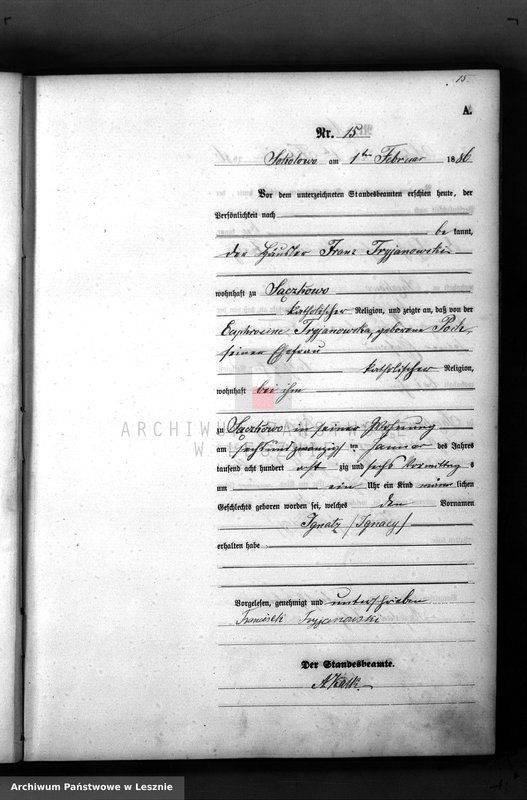 15
A.
Nr. 15
Sokolowo am 1ten Februar 1886
Vor dem unterzeichneten Standesbeamten erschien heute, der
Persönlichkeit nach
be kannt,
der Häusler Franz Tryjanowski
wohnhaft zu Sączkowo
katholischer Religion, und zeigte an, daß von der
Euphrosine Tryjanowska, geborene
seiner Ehefrau
katholischer Religion,
wohnhaft bei ihm
zu Sączkowo in seiner Wohnung
am sechsundzwanzigsten Januar des Jahres
tausend acht hundert acht zig und sechs Vormittag s
um ein Uhr ein Kind männ lichen
Geschlechts geboren worden sei, welches den Vornamen
Ignatz (Ignacy)
erhalten habe
Vorgelesen, genehmigt und unterschrieben
Franciszek Tryjanowski
Der Standesbeamte.
Archiwum Państwowe w Lesznie